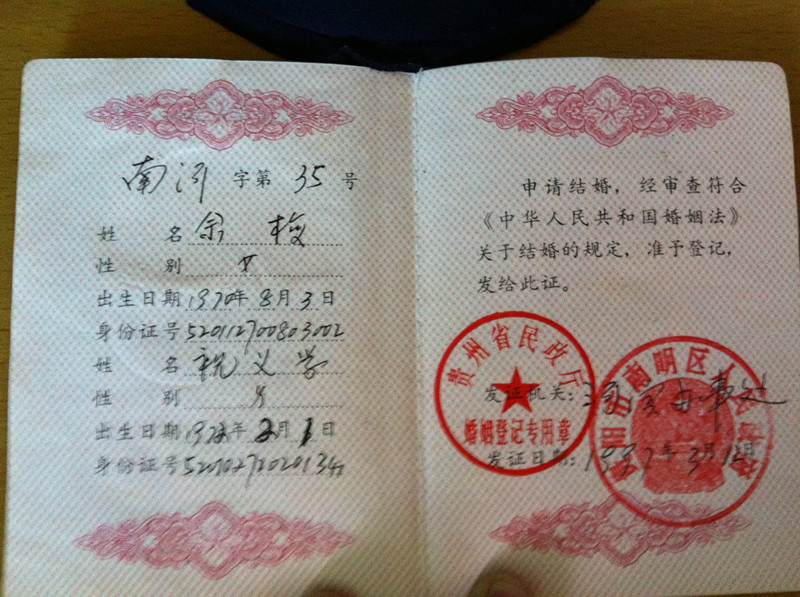 南 字第 35 号
姓 名 余 梅
性 别 女
出生日期 1970年 8月 3日
身份证号 520112700803002
姓 名 祝义学
性 别 男
出生日期 年 2月 1日
身份证号
申请结婚，经审查符合
《中华人民共和国婚姻法》
关于结婚的规定，准予登记，
发给此证。
贵州省民政厅
婚姻登记专用章
南明区人
发证机关： 办事处
发证日期： 1997年 3月 12日